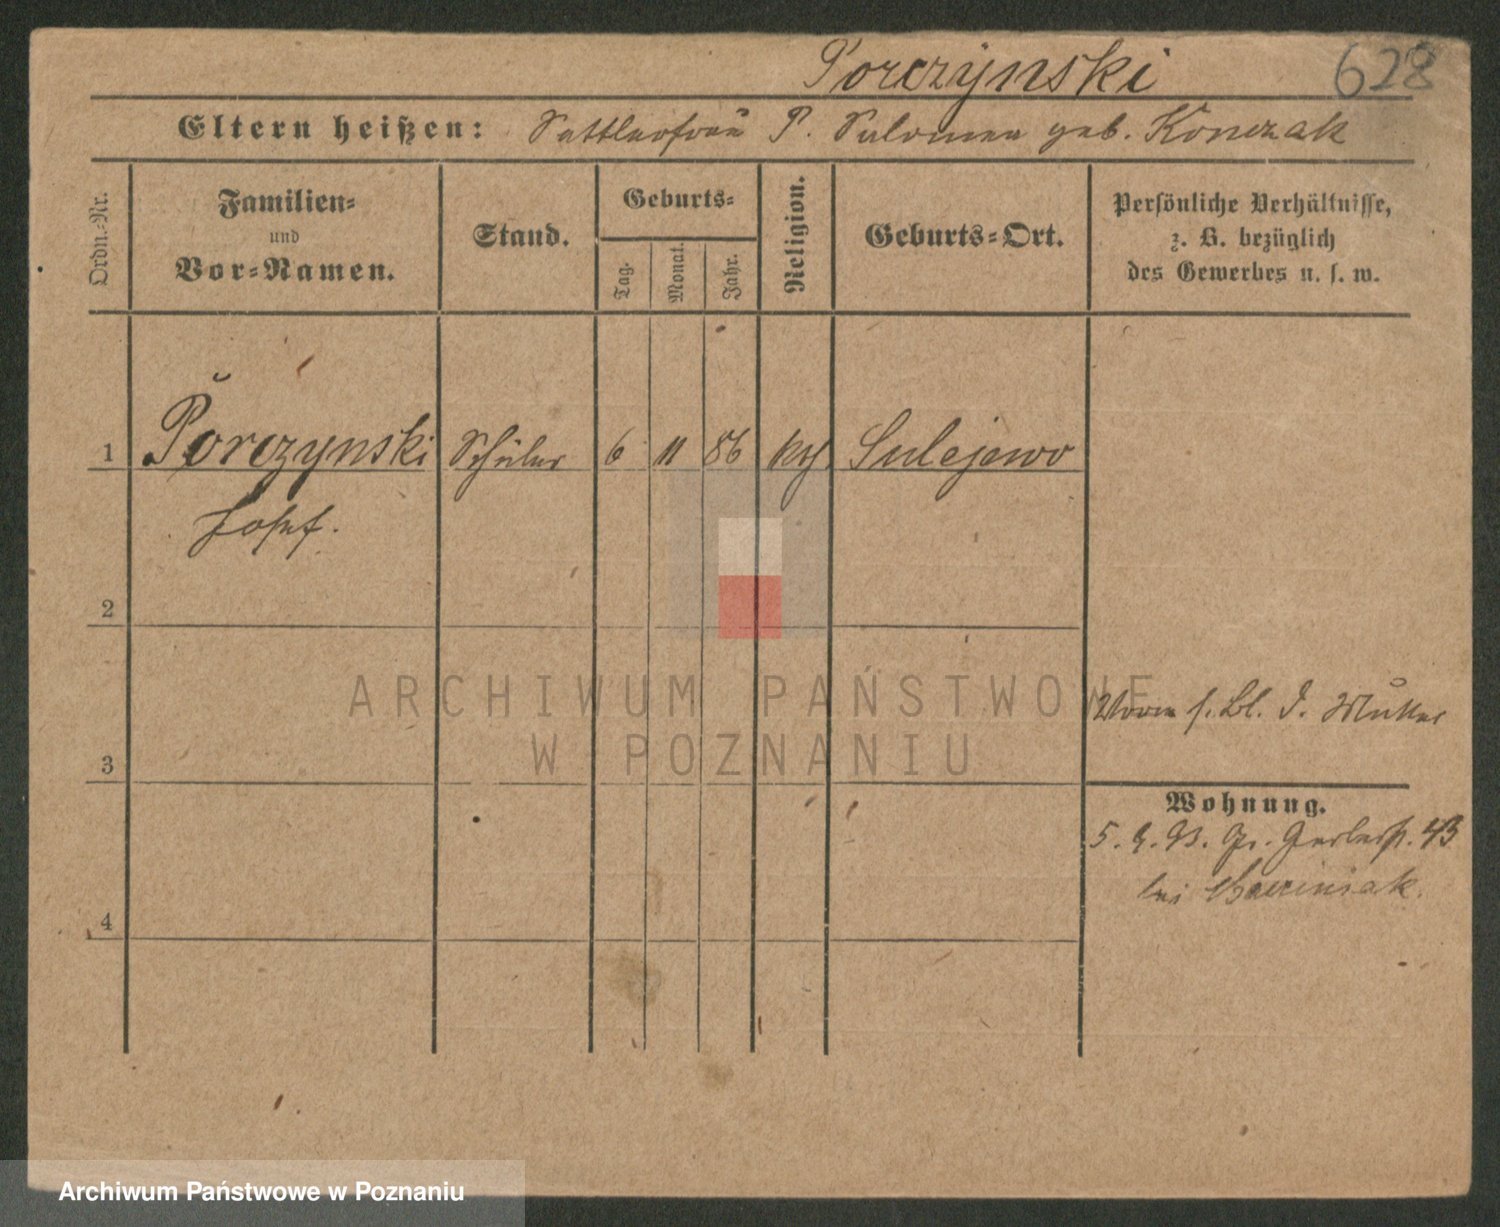 Porczynski 628
Eltern heißen: Sattlerfrau P. Salomea geb. Konczak
Ordn.-Nr.
Familien-
und
Vor-Namen.
Stand.
Geburts-
Tag.
Monat.
Jahr.
Religion.
Geburts-Ort.
Persönliche Verhältnisse,
z. B. bezüglich
des Gewerbes u. s. w.
1 Porczynski Schüler 6 11 86 kth Sulejewo
Josef.
2
ARCHIWUM PAŃSTWOWE
W POZNANIU
s. Bl. d. Mutter
3
Wohnung.
5. 9. 93. Gr. Gerberstr. 43
bei
4
Archiwum Państwowe w Poznaniu